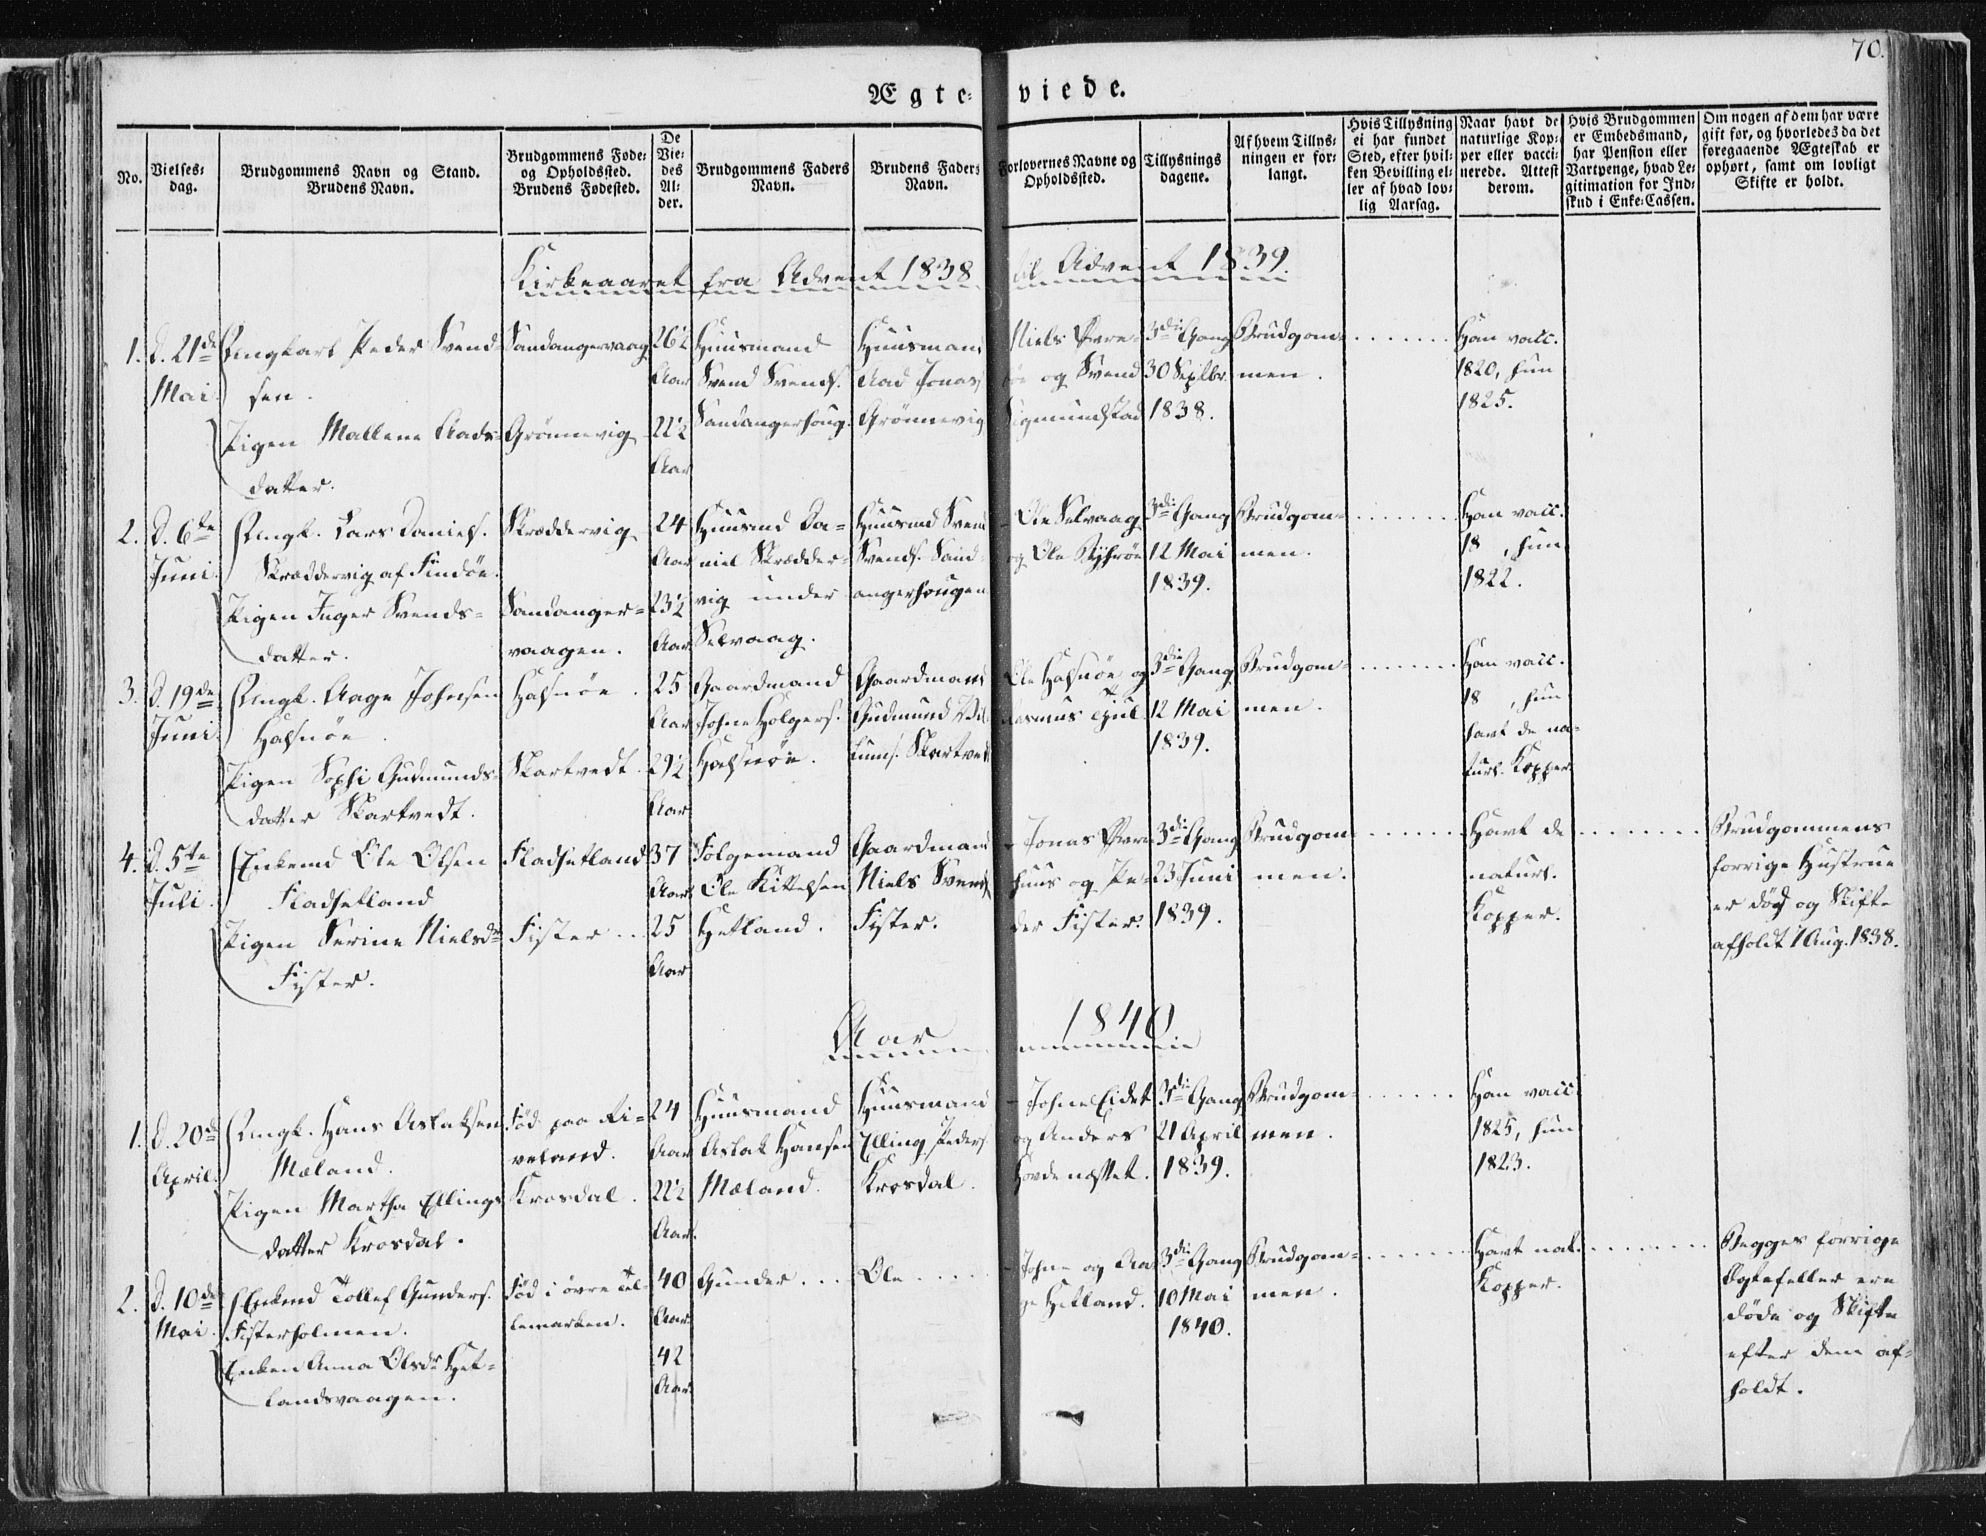 70.
Ægte-viede.
No.
Vielses-
dag.
Brudgommens Navn og Stand.
Brudens Navn.
Brudgommens Føde-
og Opholdssted.
Brudens Fødested.
De
Vie-
des
Al-
der.
Brudgommens Faders
Navn.
Brudens Faders
Navn.
Forlovernes Navne og
Opholdssted.
Tillysnings
dagene.
Af hvem Tillys-
ningen er for-
langt.
Hvis Tillysning
ei har fundet
Sted, efter hvil-
ken Bevilling el-
ler af hvad lov-
lig Aarsag.
Naar havt de
naturlige Kop-
per eller vacci-
nerede. Attest
derom.
Hvis Brudgommen
er Embedsmand,
har Pension eller
Vartpenge, hvad Le-
gitimation for Ind-
skud i Enke-Cassen.
Om nogen af dem har være
gift før, og hvorledes da det
foregaaende Ægteskab er
ophørt, samt om lovligt
Skifte er holdt.
Kirkeaaret fra Advent 1838 til Advent 1839.
1.
d. 21de
Mai
Ungkarl Peder Svend-
sen.
Pigen Mallene Aads-
datter.
Sandangervaag
Grønnevig
26½
Aar
22½
Aar
Huusmand
Svend Svends.
Sandangerhoug.
Huusmand
Aad Jonas
Grønnevig
Niels
og Svend
Sigmundstad
3die Gang
30 Septbr.
1838.
Brudgom-
men.
Han vacc.
1820, hun
1825.
2.
d. 6te
Juni.
Ungk. Lars Daniels.
Skræddervig af Findøe.
Pigen Inger Svends-
datter.
Skræddervig
Sandanger-
vaagen.
24
Aar
23½
Aar
Huusmd Da-
niel Skrædder-
vig under
Selvaag.
Huusmd Svend
Svends. Sand-
angerhougen
Ole Selvaag
og Ole
3die Gang
12 Mai
1839.
Brudgom-
men.
Han vacc.
18 , hun
1822.
3.
d. 19de
Juni
Ungk. Aage Johnsen
Halsnøe.
Pigen Sophi Gudmunds-
datter Skartvedt.
Halsnøe.
Skartvedt.
25
Aar
29½
Aar
Gaardmand
Johne Holgers.
Halsnøe.
Gaardmand
Gudmund
Skartvedt
Ole Halsnøe og
Rasmus
3die Gang
12 Mai
1839.
Brudgom-
men.
Han vacc.
18 , hun
havt de na-
turl. Kopper.
4.
d. 5te
Juli.
Enkemd Ole Olsen
Fladhetland
Pigen Serine Nielsdr
Fister.
Fladhetland
Fister
37
Aar
25
Aar
Folgemand
Ole Kittelsen
Hetland.
Gaardmand
Niels Svends.
Fister.
Jonas
huus og Pe-
der Fister.
3die Gang
23 Juni
1839.
Brudgom-
men.
Havt de
naturl.
Kopper.
Brudgommens
forrige Hustrue
er død og Skifte
afholdt 7 Aug. 1838.
Aar 1840.
1.
d. 20de
April.
Ungk. Hans Aslaksen
Mæland.
Pigen Martha Ellings
datter Krosdal.
Fød paa Ri-
veland.
Krosdal.
24
Aar
22½
Aar.
Huusmand
Aslak Hansen
Mæland.
Huusmand
Elling Peders.
Krosdal.
Johne Eidet
og Anders
Hovdenæsset.
3die Gang
21 April
1839.
Brudgom-
men.
Han vacc.
1825, hun
1823.
2.
d. 10de
Mai.
Enkmd Tollef Gunders.
Fisterholmen.
Enken Anna Olsdr Het-
landsvaagen.
Fød i øvre Tel-
lemarken.
40
Aar.
42
Aar.
Gunder
Ole
Johne og Aa-
ge Hetland.
3die Gang
10 Mai
1840.
Brudgom-
men.
Havt nat.
Kopper.
Begges forrige
Ægtefeller ere
døde og Skifte
efter dem af-
holdt.